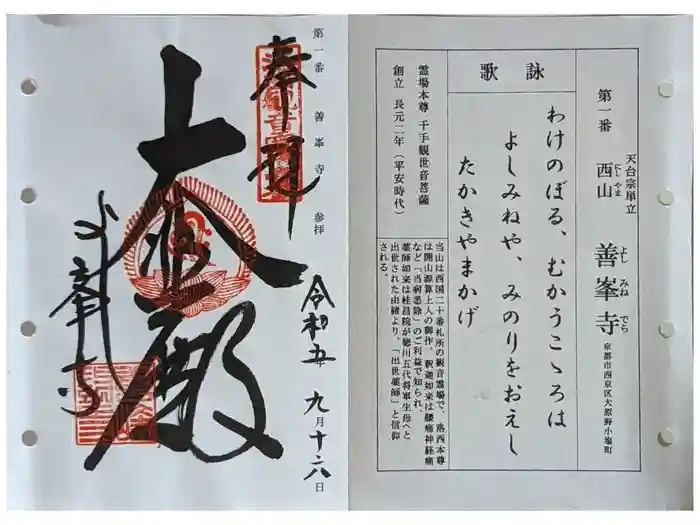 第一番 善峯寺 参拝
奉拝
大悲殿
善峯寺
令和五年 九月十六日
詠歌
第一番
天台宗単立
西山 善峯寺
にしやま よしみねでら
京都市西京区大原野小塩町
わけのぼる、むかうこゝろは
よしみねや、みのりをおえし
たかきやまかげ
霊場本尊 千手観世音菩薩
創立 長元二年(平安時代)
当山は西国二十番札所の観音霊場で、洛西本尊
は開山源算上人の御作。釈迦如来は腰痛神経痛
など「当病悉除」のご利益で知られ、
薬師如来は桂昌院が徳川五代将軍生母へと
出世された由緒より、「出世薬師」と信仰
される。